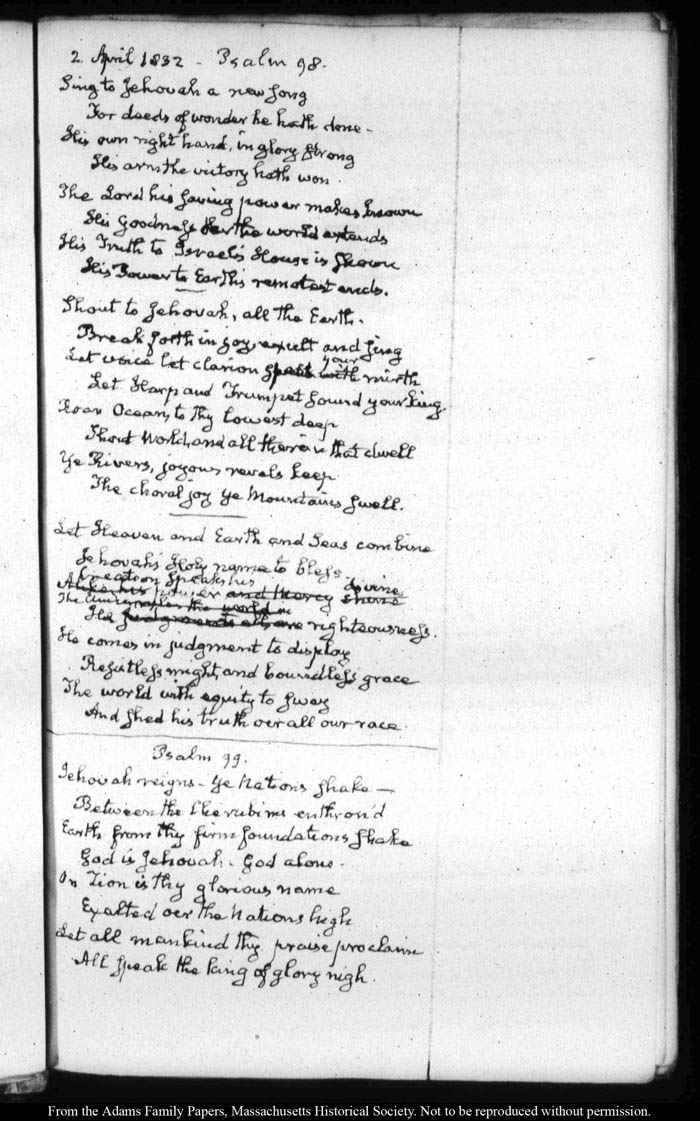 2. April 1832 - Psalm 98.
Sing to Jehovah a new song
For deeds of wonder he hath done -
His own right hand, in glory strong
His arm the victory hath won.
The Lord his saving power makes known
His Goodness o'er the world extends
His Truth to Israel's House is shown
His Power to Earth's remotest ends.
Shout to Jehovah, all the Earth.
Break forth in joy, exult and sing
Let voice let clarion speak your mirth
Let Harp and Trumpet sound your king
Roar Ocean, to thy lowest deep
Shout World, and all therein that dwell
Ye Rivers, joyous revels keep
The choral joy ye Mountains swell.
Let Heaven and Earth and Seas combine
Jehovah's Holy name to bless
Creation speaks his power divine
and Mercy shine
The world in
He judgments are righteousness.
He comes in judgment to display
Resistless might, and boundless grace
The world with equity to sway
And shed his truth oer all our race.
Psalm 99.
Jehovah reigns - Ye Nations shake —
Between the Cherubims enthron'd
Earth from thy firm foundations shake
God is Jehovah - God alone.
On Zion is thy glorious name
Exalted oer the Nations high
Let all mankind thy praise proclaim
All speak the king of glory nigh.
From the Adams Family Papers, Massachusetts Historical Society. Not to be reproduced without permission.